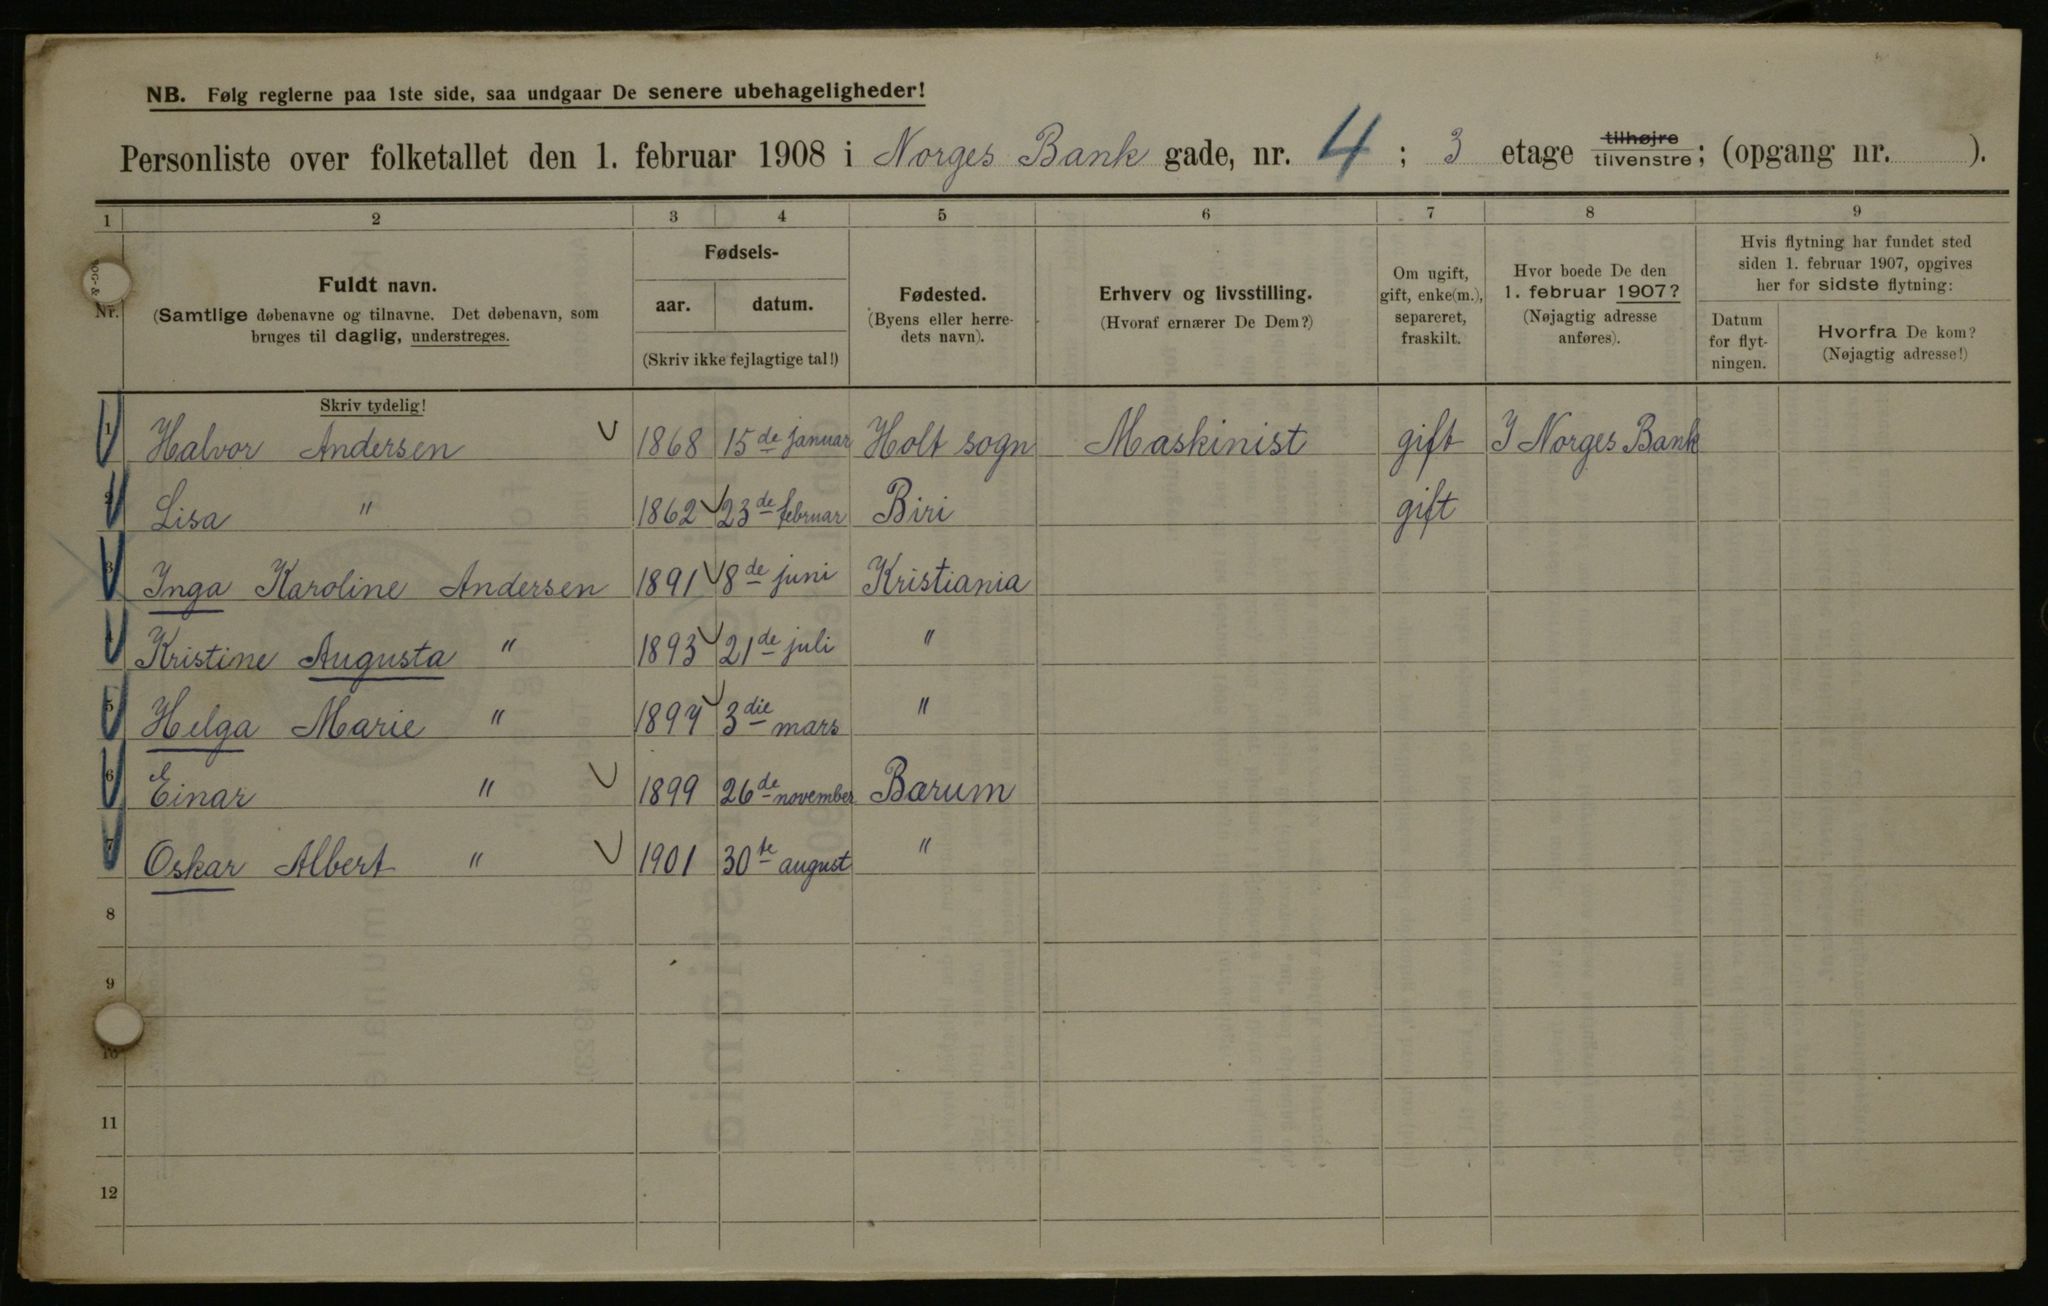 NB. Følg reglerne paa 1ste side, saa undgaar De senere ubehageligheder!
Personliste over folketallet den 1. februar 1908 i Norges Bank gade, nr. 4 ; 3 etage tilhøjre tilvenstre; (opgang nr. ).
1 2 3 4 5 6 7 8 9
Nr.
Fuldt navn.
(Samtlige døbenavne og tilnavne. Det døbenavn, som
bruges til daglig, understreges.
Fødsels-
aar. datum.
(Skriv ikke fejlagtige tal!)
Fødested.
(Byens eller herre-
dets navn).
Erhverv og livsstilling.
(Hvoraf ernærer De Dem?)
Om ugift,
gift, enke(m.),
separeret,
fraskilt.
Hvor boede De den
1. februar 1907?
(Nøjagtig adresse
anføres).
Hvis flytning har fundet sted
siden 1. februar 1907, opgives
her for sidste flytning:
Datum
for flyt-
ningen.
Hvorfra De kom?
(Nøjagtig adresse!)
Skriv tydelig!
1 Halvor Andersen 1868 15de januar Holt sogn Maskinist gift I Norges Bank
2 Lisa " 1862 23de februar Biri gift
3 Inga Karoline Andersen 1891 8de juni Kristiania
4 Kristine Augusta " 1893 21de juli "
5 Helga Marie " 1897 3die mars "
6 Einar " 1899 26de november Bærum
7 Oskar Albert " 1901 30te august "
8
9
10
11
12